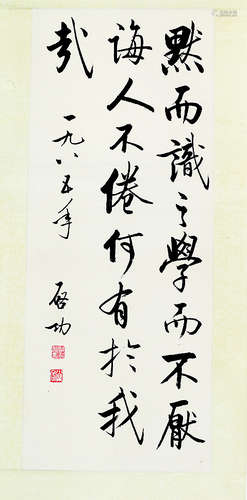 默而識之學而不厭
誨人不倦何有於我
哉
一九八五年
啓功